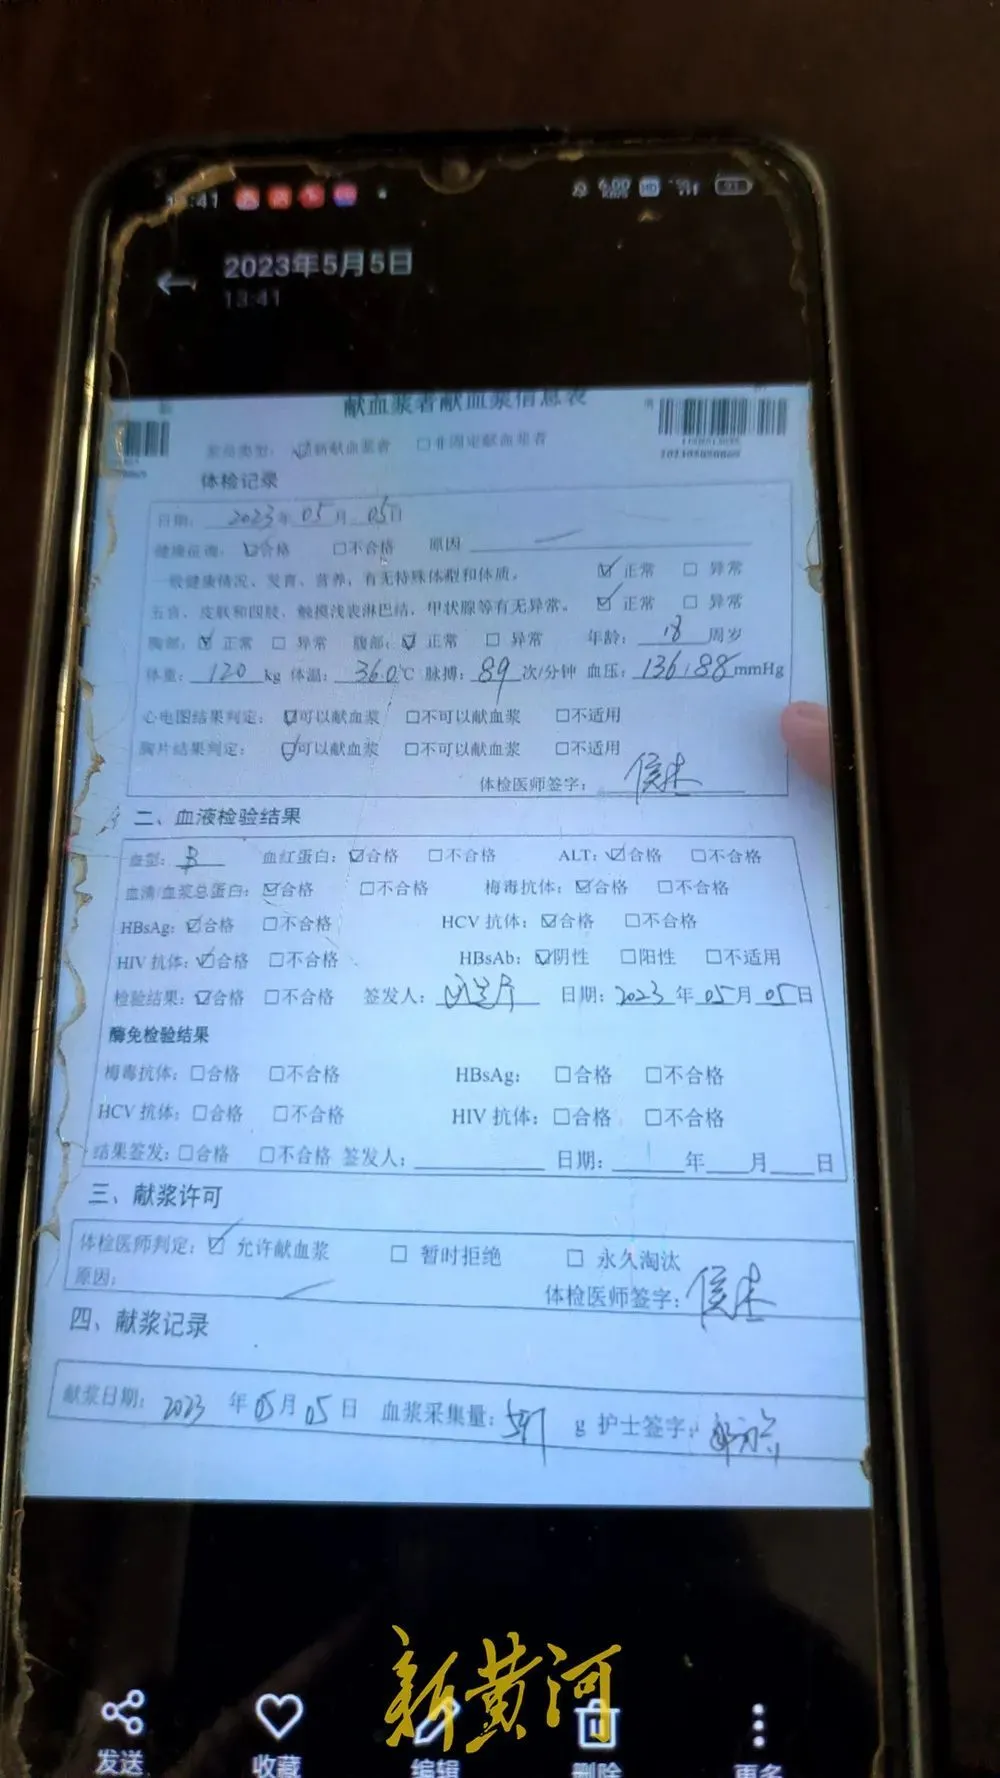 13:41
2023年5月5日
13:41
献血浆者献血浆信息表
浆员类型: ☑新献血浆者 □非固定献血浆者
体检记录
日期: 2023年 05月 05日
健康征询: ☑合格 □不合格 原因
一般健康情况、发育、营养, 有无特殊体型和体质。 ☑正常 □异常
五官、皮肤和四肢, 触摸浅表淋巴结, 甲状腺等有无异常。 ☑正常 □异常
胸部: ☑正常 □异常 腹部: ☑正常 □异常 年龄: 18 周岁
体重: 120 kg 体温: 36.0℃ 脉搏: 89 次/分钟 血压: 136/88 mmHg
心电图结果判定: ☑可以献血浆 □不可以献血浆 □不适用
胸片结果判定: ☑可以献血浆 □不可以献血浆 □不适用
体检医师签字:
二、血液检验结果
血型: B 血红蛋白: ☑合格 □不合格 ALT: ☑合格 □不合格
血清/血浆总蛋白: ☑合格 □不合格 梅毒抗体: ☑合格 □不合格
HBsAg: ☑合格 □不合格 HCV 抗体: ☑合格 □不合格
HIV 抗体: ☑合格 □不合格 HBsAb: ☑阴性 □阳性 □不适用
检验结果: ☑合格 □不合格 签发人: 日期: 2023 年 05月 05日
酶免检验结果
梅毒抗体: □合格 □不合格 HBsAg: □合格 □不合格
HCV 抗体: □合格 □不合格 HIV 抗体: □合格 □不合格
结果签发: □合格 □不合格 签发人: 日期: 年 月 日
三、献浆许可
体检医师判定: ☑ 允许献血浆 □ 暂时拒绝 □ 永久淘汰
原因:
体检医师签字:
四、献浆记录
献浆日期: 2023 年05月05日 血浆采集量: g 护士签字:
新黄河
发送 收藏 编辑 删除 更多